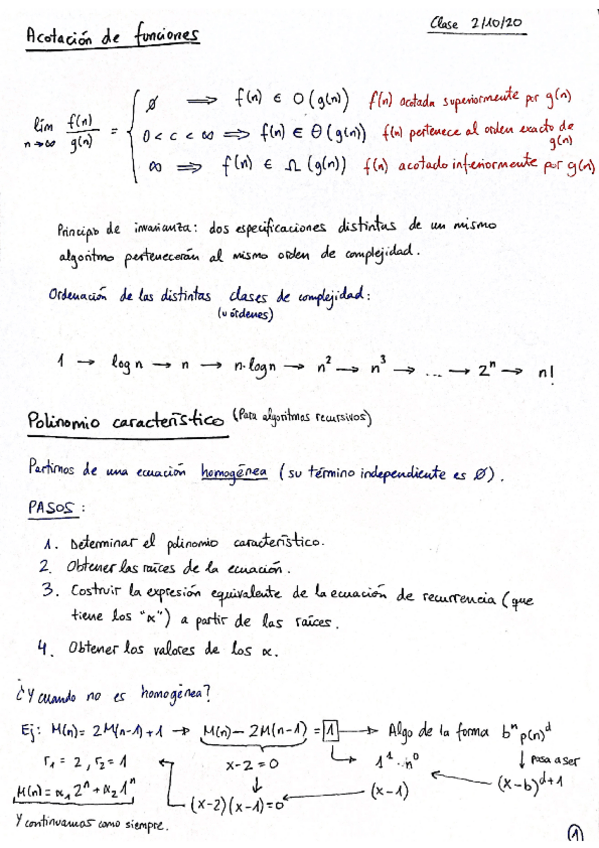 Clase 2/10/20
Acotación de funciones
lím n→∞ f(n)/g(n) = {
∅ ⟹ f(n) ∈ O(g(n)) f(n) acotada superiormente por g(n)
0 < c < ∞ ⟹ f(n) ∈ Θ(g(n)) f(n) pertenece al orden exacto de g(n)
∞ ⟹ f(n) ∈ Ω(g(n)) f(n) acotado inferiormente por g(n)
Principio de invarianza: dos especificaciones distintas de un mismo
algoritmo pertenecerán al mismo orden de complejidad.
Ordenación de las distintas clases de complejidad:
(u órdenes)
1 → log n → n → n·log n → n² → n³ → ... → 2ⁿ → n!
Polinomio característico (Para algoritmos recursivos)
Partimos de una ecuación homogénea (su término independiente es ∅).
PASOS:
1. Determinar el polinomio característico.
2. Obtener las raíces de la ecuación.
3. Costruir la expresión equivalente de la ecuación de recurrencia (que
tiene los "α") a partir de las raíces.
4. Obtener los valores de los α.
¿Y cuando no es homogénea?
Ej: M(n) = 2M(n-1)+1 → M(n) - 2M(n-1) = 1 → Algo de la forma bⁿ p(n)ᵈ
r₁ = 2, r₂ = 1 ← x-2=0 ↳ 1¹·n⁰ ↓ pasa a ser
M(n) = α₁2ⁿ + α₂1ⁿ ↓ (x-1) ← (x-b)ᵈ⁺¹
(x-2)(x-1)=0 ←
Y continuamos como siempre.
1